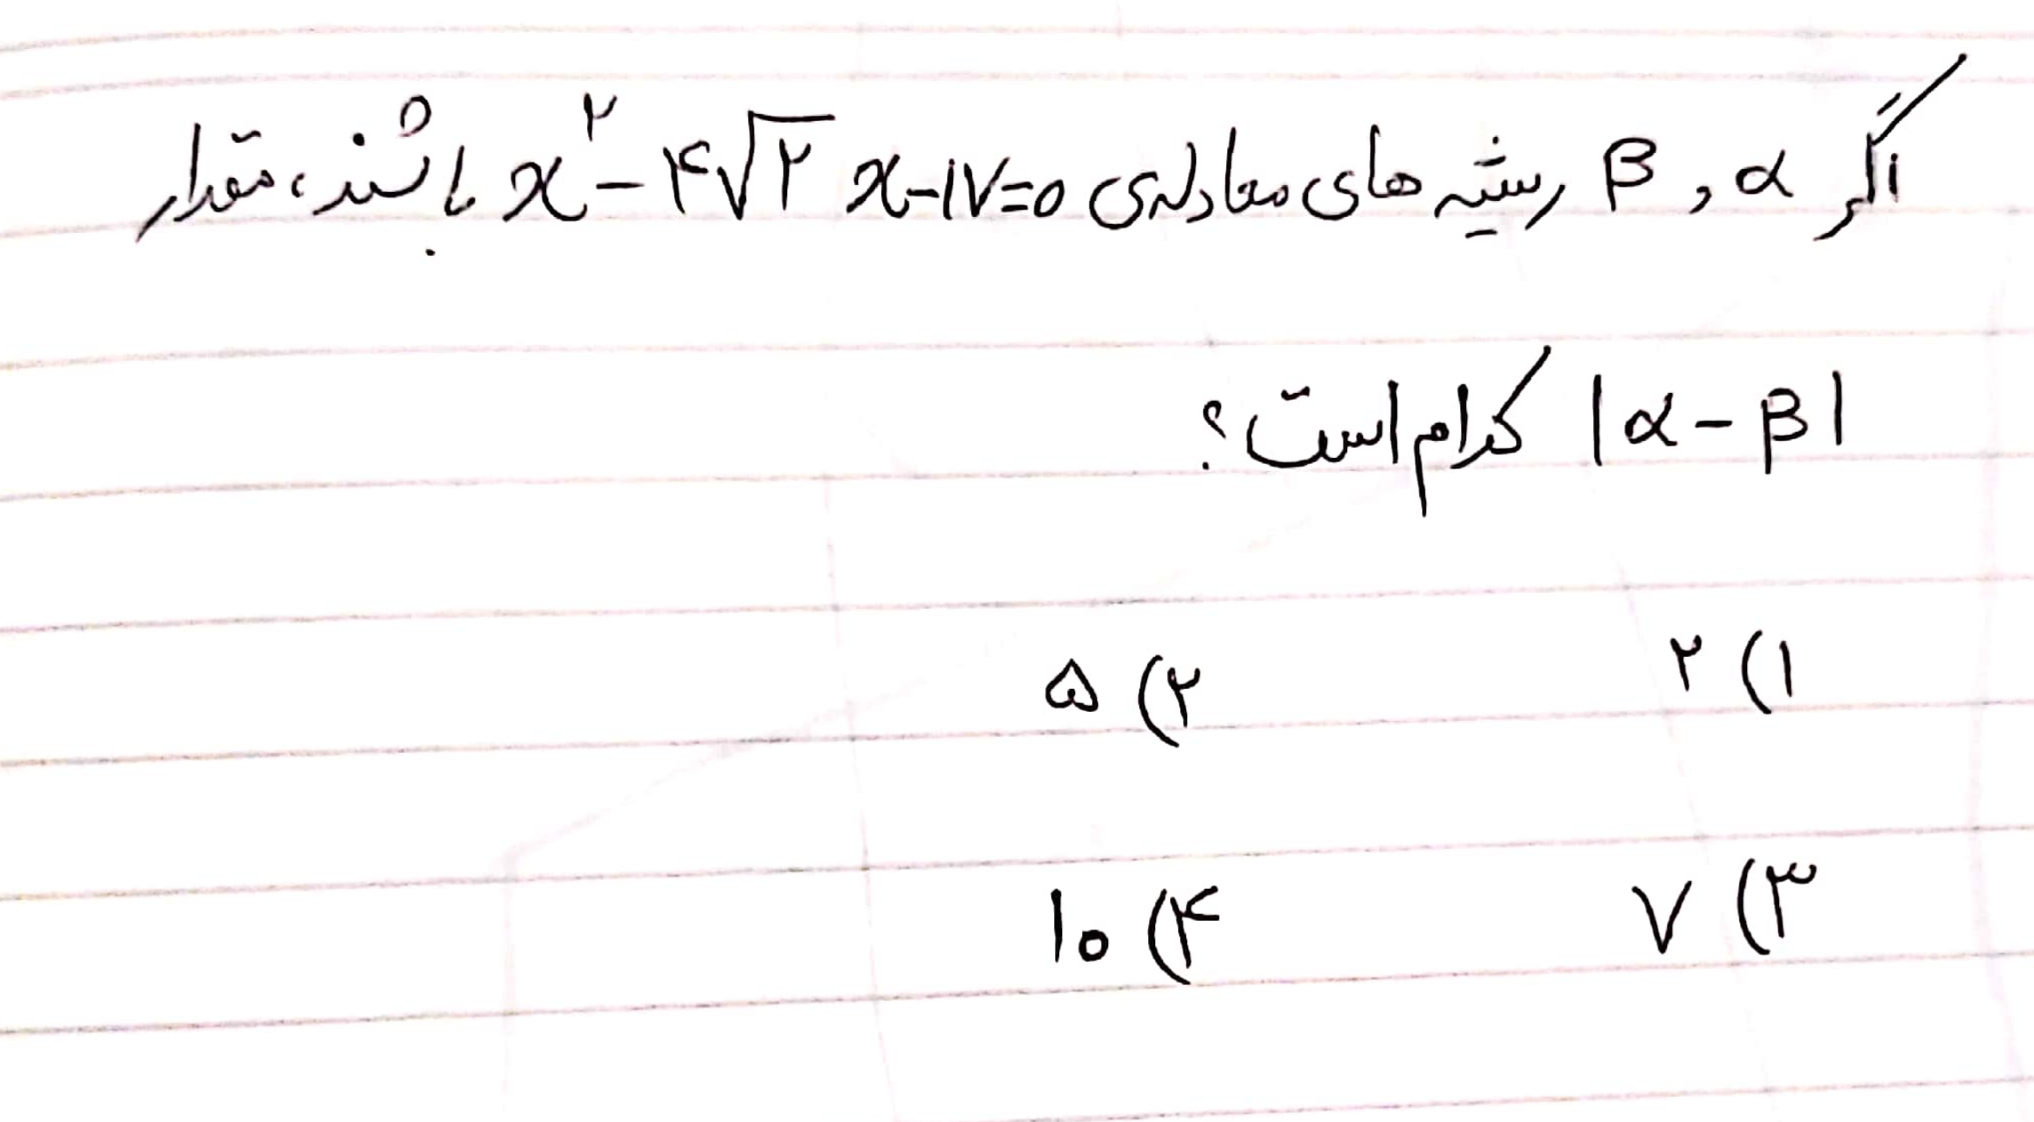 اگر α و β ریشه های معادله‌ی x² - ۴√۲ x - ۱۷ = ۰ باشند، مقدار
|α - β| کدام است؟
۱) ۲ ۲) ۵
۳) ۷ ۴) ۱۰